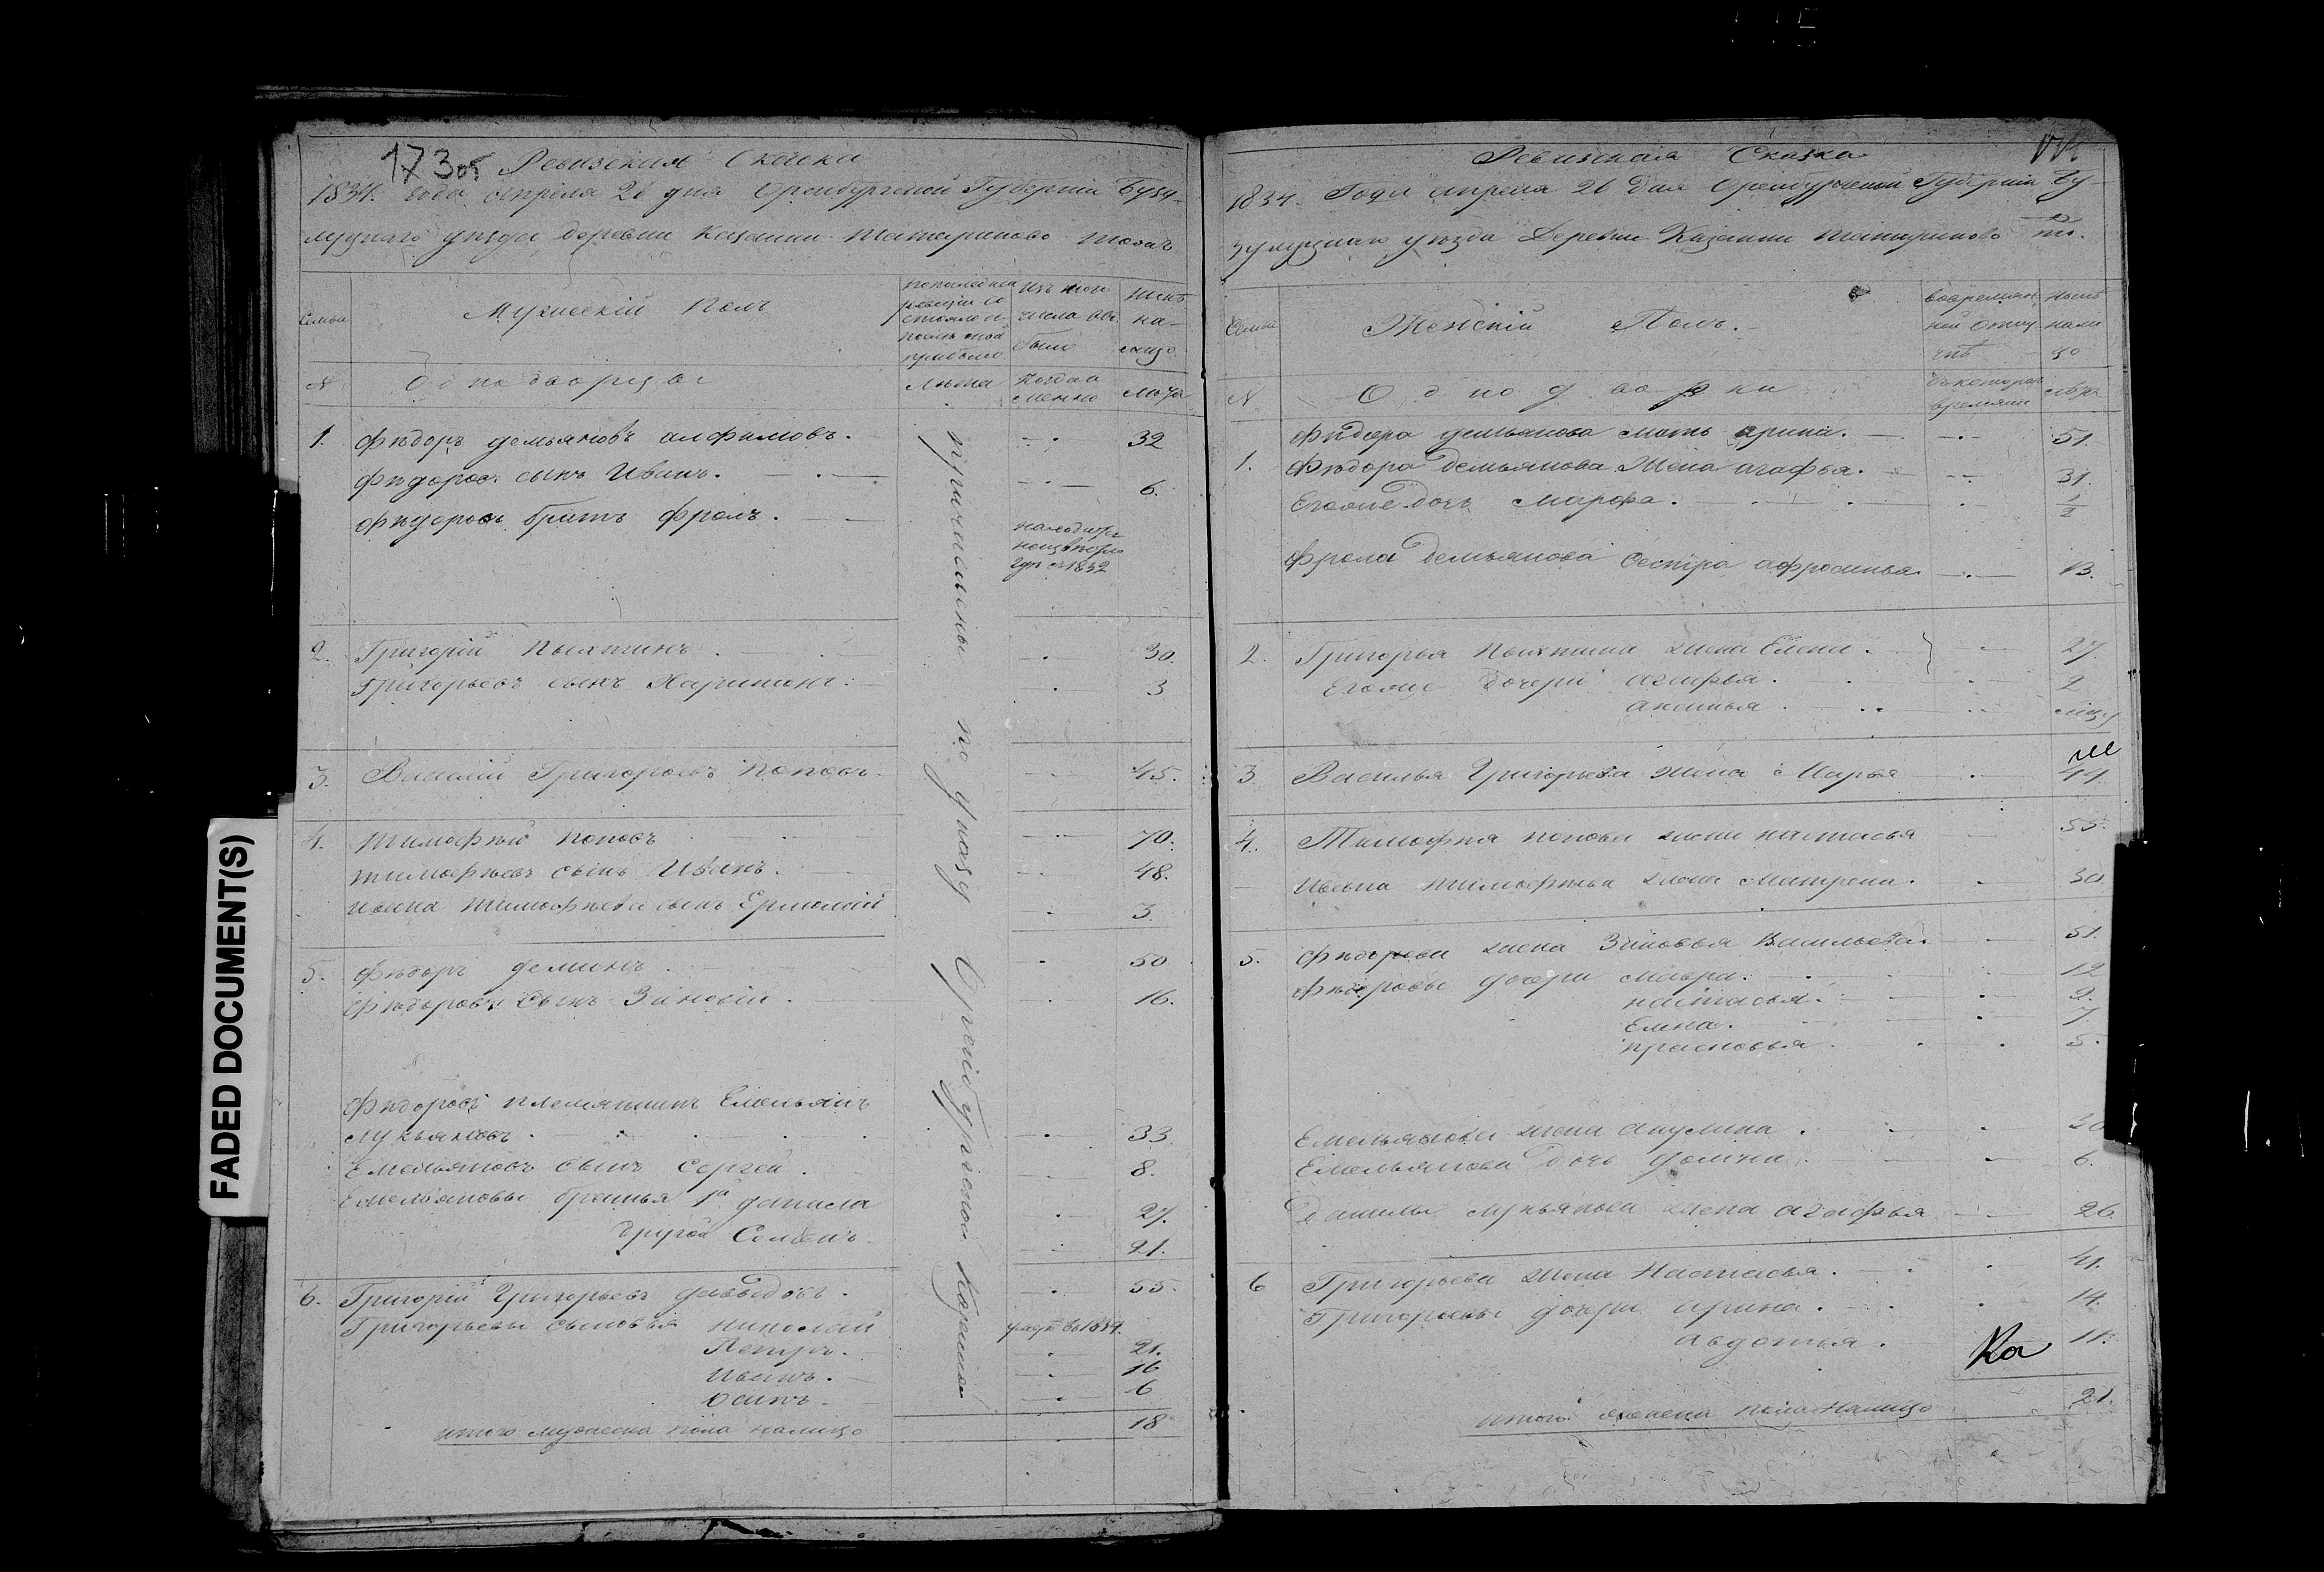 173 об Ревизская Сказка
1834. года апреля 26 дня Оренбургской Губернии Бузу-
лузкаго уезда деревни Казанки Татариново тожъ
Семьи
Мужеский Полъ
по последней ревизии состояло и после того прибыло
Изъ того числа выбыло
Ныне на-лицо
№ Однодворцы
Лета
Когда именно
Лета
причислены по указу Оренбургской Казенной
1. Фѣдоръ демьяновъ алфимовъ. 32
Фѣдоровъ сынъ Иванъ. 6.
Фѣдоровъ братъ фролъ.
1832
2. Григорій Пыхтинъ. 30.
Григорьевъ сынъ Харитонъ. 3
3. Василій Григорьевъ Поповъ. 45.
4. Тимофѣй Поповъ 70.
тимофѣевъ сынъ Иванъ. 48.
ивана тимофѣева сынъ Ермолай 3.
5. Фѣдоръ деминъ. 50
Фѣдоровъ сынъ Зиновій. 16.
Фѣдоровъ племянникъ Емельянъ
Лукьяновъ. 33
Емельяновъ сынъ Сергей. 8.
Емельяновы братья 1й данила 27.
другой Семенъ 21.
6. Григорій Григорьевъ давыдовъ. 55.
Григорьевы сыновья николай
Петръ. 21.
Иванъ. 16
Осипъ. 6
итого мужеска пола налицо 18
Ревизская Сказка
1834. Года апреля 26 дня Оренбургской Губерніи Бу-
зулузкаго уезда Деревни Казанки Татариново то.
Семьи
Женскій Полъ.
во временной отлучке
ныне налицо
№ Однодворки
съ которого времени
лета
Фѣдора демьянова мать арина. 51.
1. Фѣдора демьянова Жена агафья. 31.
Егоже дочь Марфа. 1/2
Фрола демьянова Сестра афросинья. 13.
2. Григорья Пыхтина жена Елена. 27.
Егоже дочери агафья. 2
аксинья.
3 Василья Григорьева жена Марья 44.
4. Тимофѣя попова жена настасья 55.
Ивана тимофѣева жена Матрена. 30
5. Фѣдорова жена Зиновья Васильева. 51.
Фѣдоровы дочери Мавра. 12
настасья. 9.
Елена. 7
прасковья. 5.
Емельянова жена акулина.
Емельянова дочь домна. 6.
Данилы лукьянова жена агафья 26
6 Григорьева жена Настасья. 41.
Григорьевы дочери арина. 14.
авдотья. 11.
Ка
итого женска пола налицо 21.
FADED DOCUMENT(S)